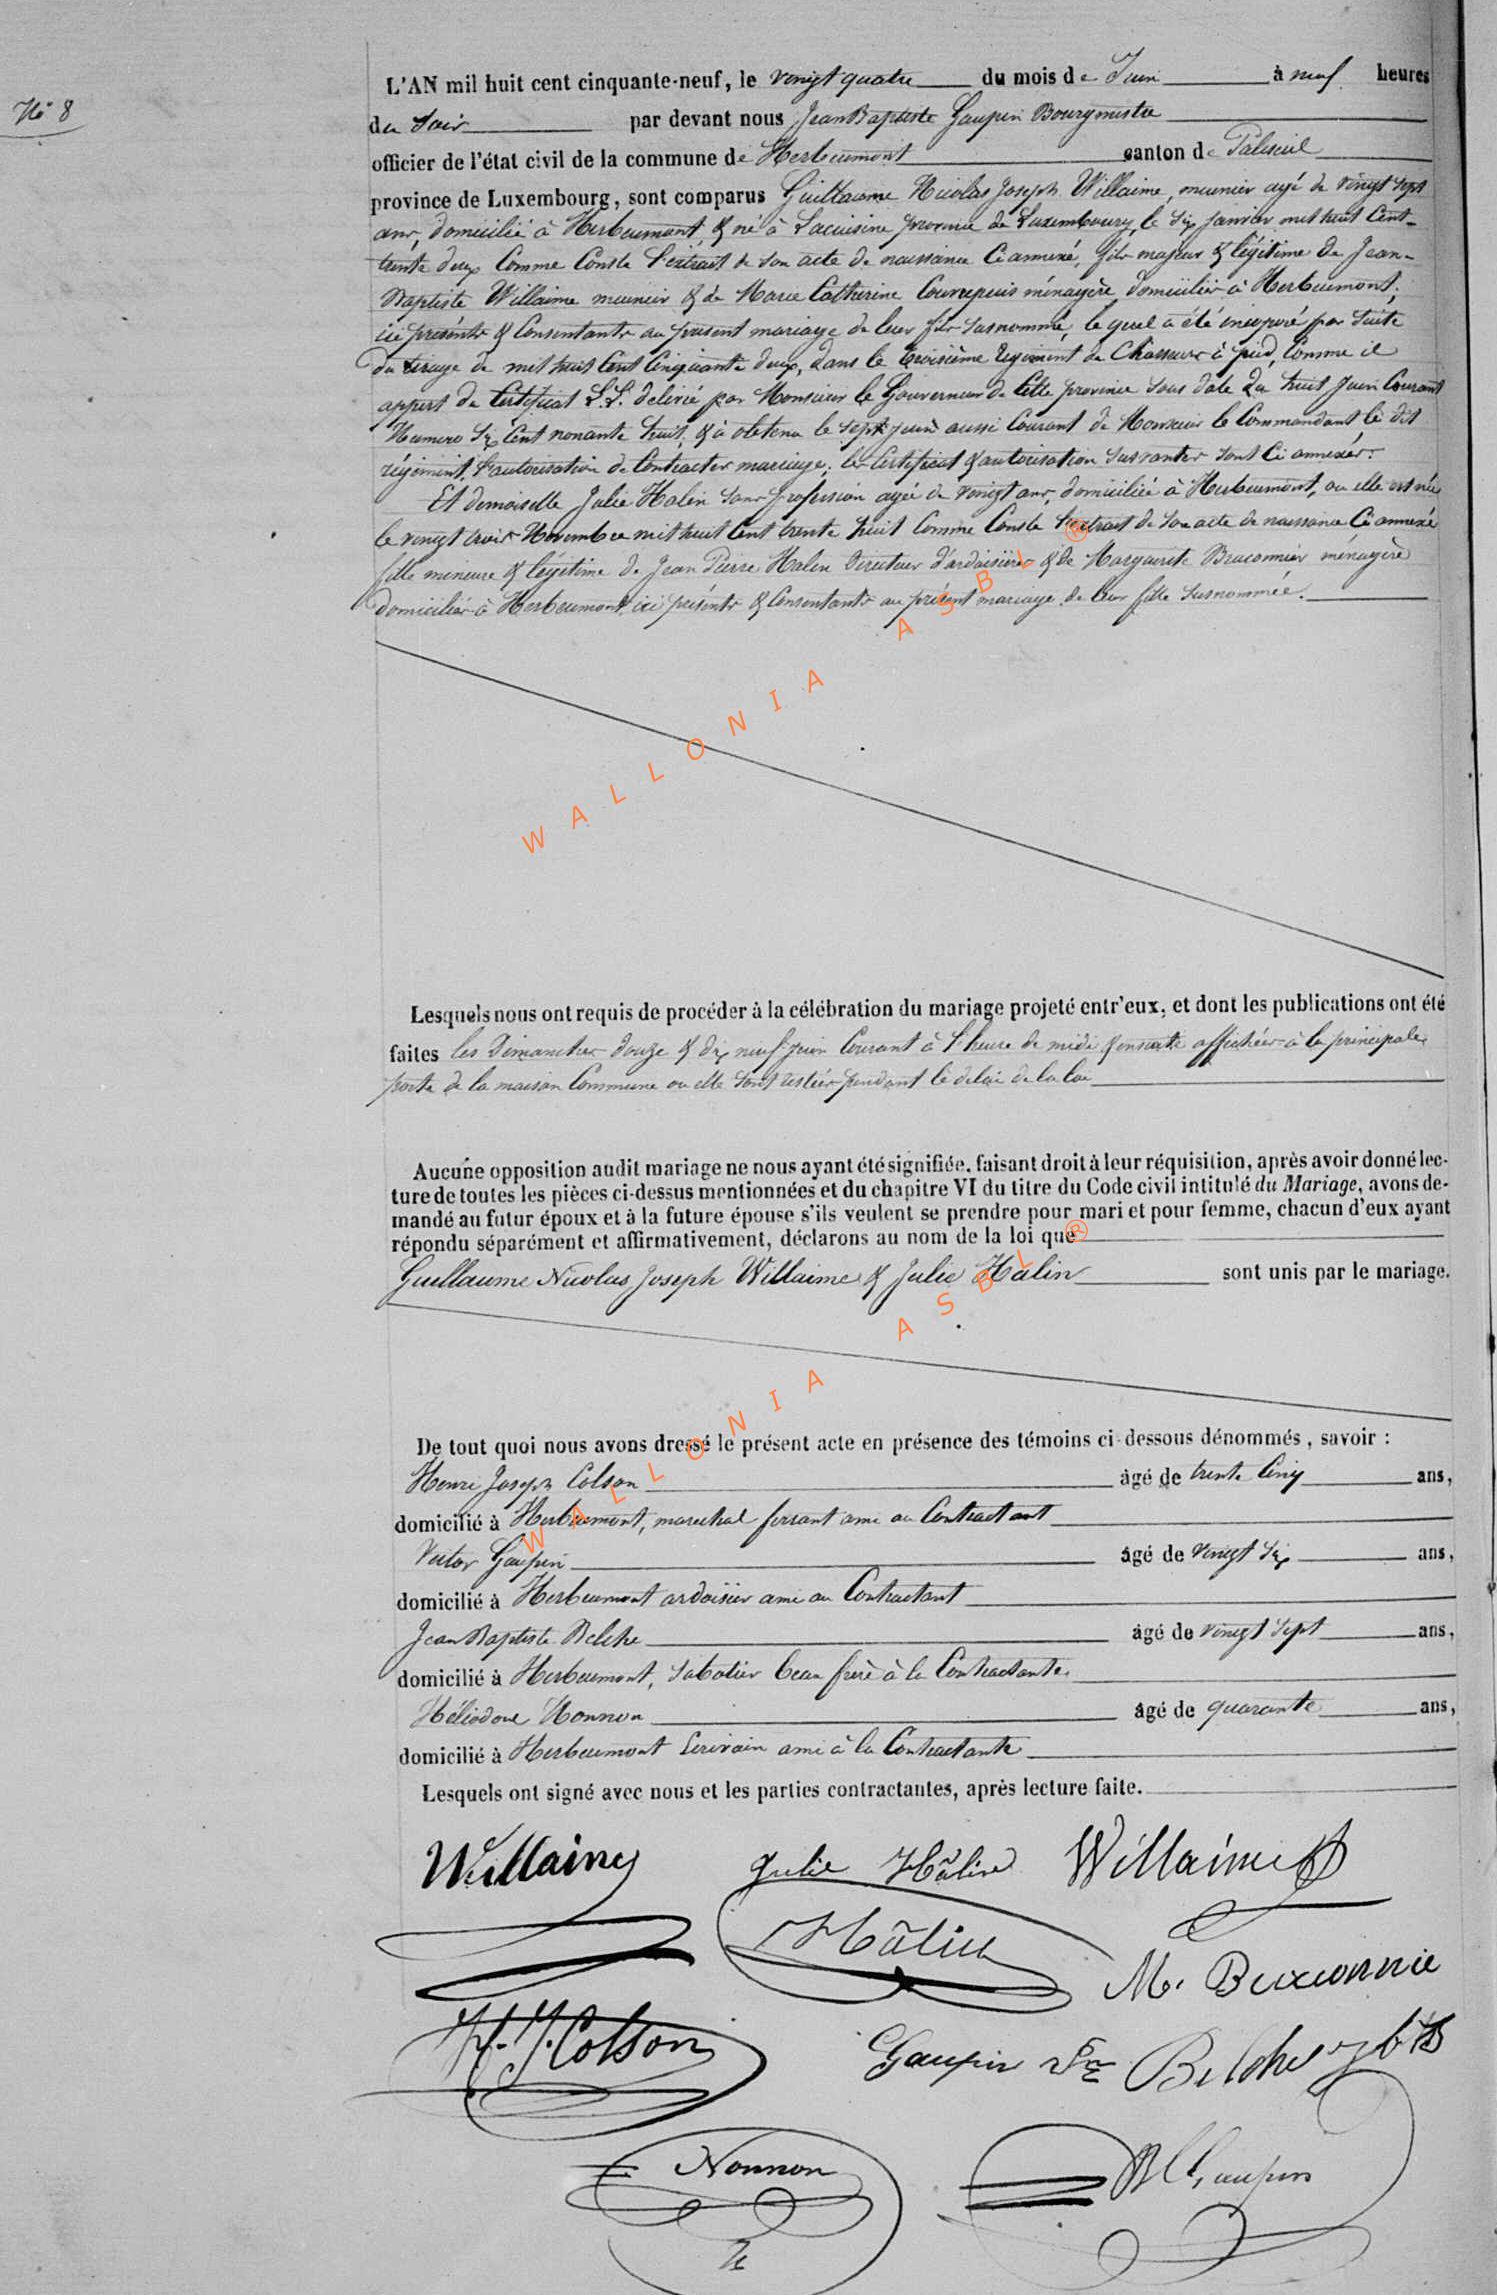 N° 8
L'AN mil huit cent cinquante-neuf, le vingt quatre du mois de Juin à neuf heures
du soir par devant nous Jean Baptiste Gaupin Bourgmestre
officier de l'état civil de la commune de Herbeumont canton de Paliseul
province de Luxembourg, sont comparus Guillaume Nicolas Joseph Willaime, meunier agé de vingt sept
ans, domicilié à Herbeumont & né à Lacuisine province de Luxembourg, le six janvier mil huit Cent
trente deux Comme Conste l'extrait de son acte de naissance Ci annexé, fils majeur & légitime de Jean-
Baptiste Willaime meunier & de Marie Catherine domiciliés à Herbeumont,
ici présents & Consentants au présent mariage de leur fils susnommé, le quel a été incorporé par suite
du tirage de mil huit Cent Cinquante deux, dans le troisième régiment de Chasseurs à pied, Comme il
appert du Certificat L.L. délivré par Monsieur le Gouverneur de Cette province sous date du huit Juin Courant
Numero Six Cent nonante huit, & a obtenu le sept juin aussi Courant de Monsieur le Commandant le dit
régiment, l'autorisation de Contracter mariage; les Certificat & autorisation susvantés sont Ci annexés.
Et demoiselle Julie Halin sans profession agée de vingt ans, domiciliée à Herbeumont, ou elle est née
le vingt trois Novembre mil huit Cent trente huit Comme Conste l'extrait de son acte de naissance Ci annexé
fille mineure & légitime de Jean Pierre Halin Directeur d'ardoisières & de Marguerite Braconnier ménagère
domiciliés à Herbeumont, ici présents & Consentants au présent mariage de leur fille susnommée.
WALLONIA ASBL ®
Lesquels nous ont requis de procéder à la célébration du mariage projeté entr'eux, et dont les publications ont été
faites les Dimanches douze & dix neuf juin Courant à l'heure de midi & ensuite affichées à la principale
porte de la maison Commune ou elle sont restées pendant le delai de la loi
Aucune opposition audit mariage ne nous ayant été signifiée, faisant droit à leur réquisition, après avoir donné lec-
ture de toutes les pièces ci-dessus mentionnées et du chapitre VI du titre du Code civil intitulé du Mariage, avons de-
mandé au futur époux et à la future épouse s'ils veulent se prendre pour mari et pour femme, chacun d'eux ayant
répondu séparément et affirmativement, déclarons au nom de la loi que
Guillaume Nicolas Joseph Willaime & Julie Halin sont unis par le mariage.
WALLONIA ASBL ®
De tout quoi nous avons dressé le présent acte en présence des témoins ci-dessous dénommés, savoir :
Henri Joseph Colson âgé de trente Cinq ans,
domicilié à Herbeumont, marechal ferrant ami au Contractant
Victor Gaupin âgé de vingt six ans,
domicilié à Herbeumont ardoisier ami au Contractant
Jean Baptiste Belche âgé de vingt sept ans,
domicilié à Herbeumont, sabotier beau frère à la Contractante
Héliodore Nonnon âgé de quarante ans,
domicilié à Herbeumont Ecrivain ami à la Contractante
Lesquels ont signé avec nous et les parties contractantes, après lecture faite.
Willaime Julie Hâlin Willaime
Hâlin
M. Braconnie
H. J. Colson Gaupin
Nonnon